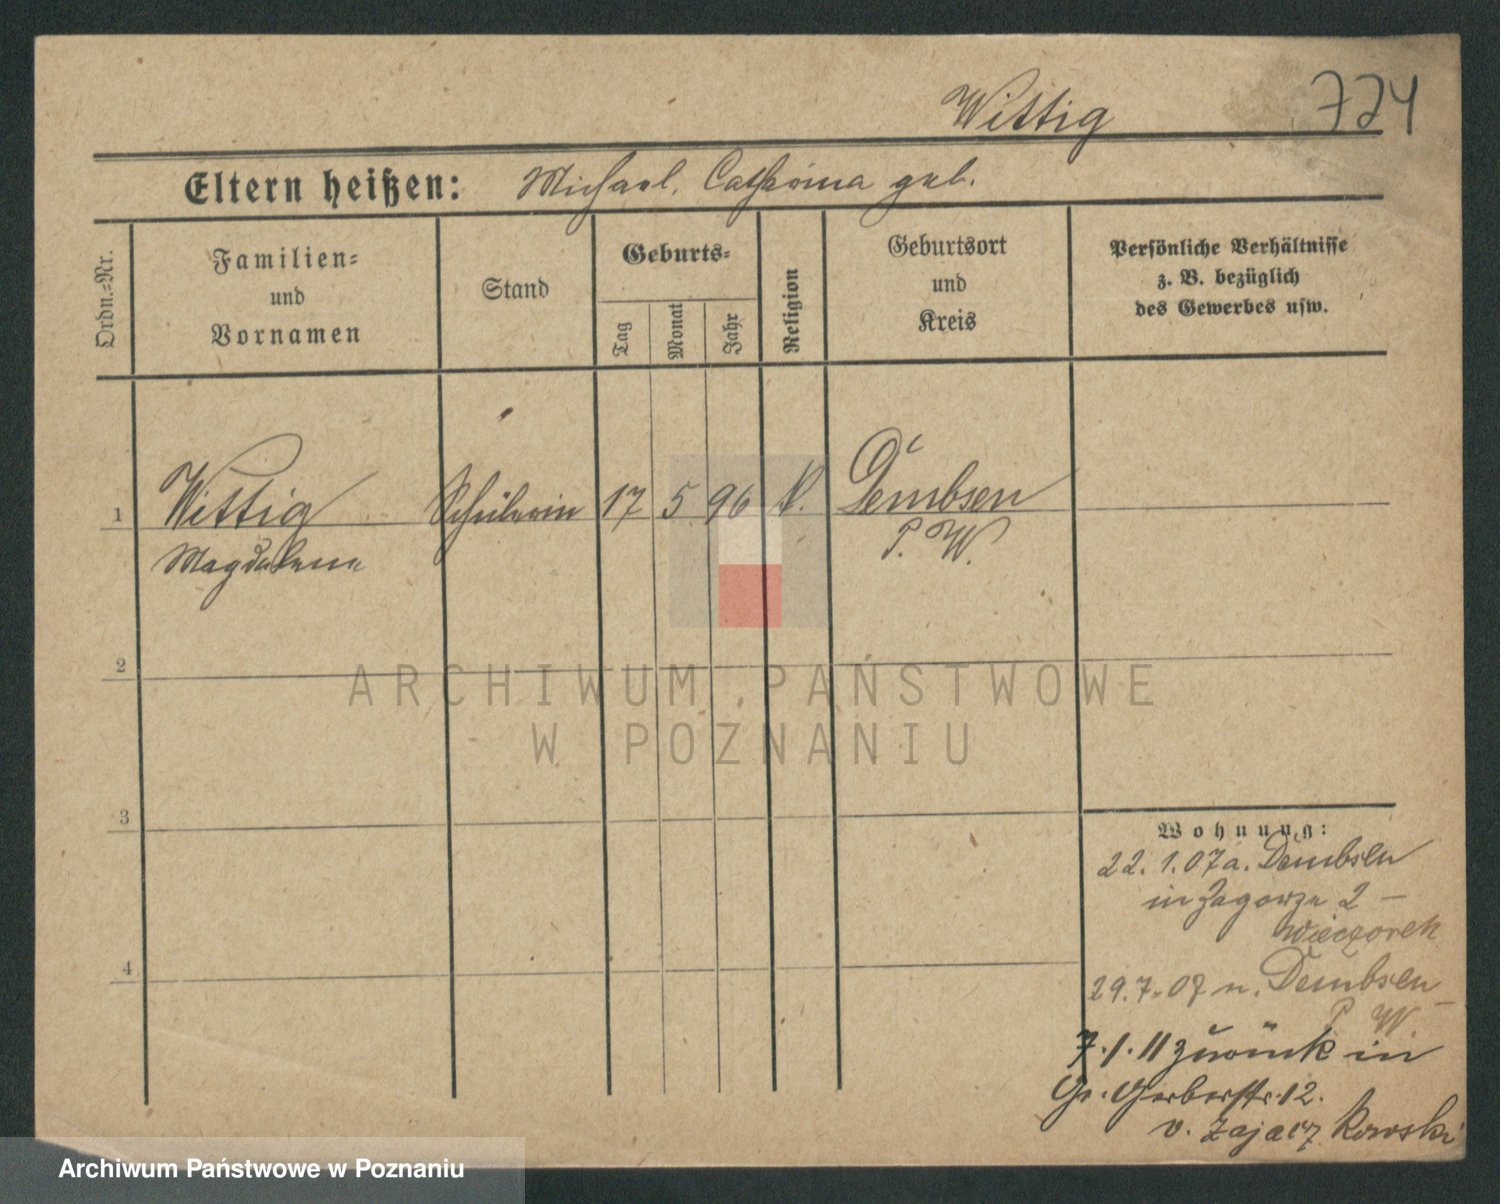 Wittig 724
Eltern heißen: Michael, Catharina geb.
Ordn.-Nr.
Familien-
und
Vornamen
Stand
Geburts-
Tag
Monat
Jahr
Religion
Geburtsort
und
Kreis
Persönliche Verhältnisse
z. B. bezüglich
des Gewerbes usw.
1 Wittig Schülerin 17 5 96 k. Dembsen
Magdalena P. W.
2
ARCHIWUM PAŃSTWOWE
W POZNANIU
3
Wohnung:
22. 1. 07 a. Dembsen
in Zagorze 2 –
Wieczorek
4
29. 7. 07 n. Dembsen
P. W.
7. 1. 11 zurück in
Gr. Gerberstr. 12.
v. Zajaczkowski
Archiwum Państwowe w Poznaniu